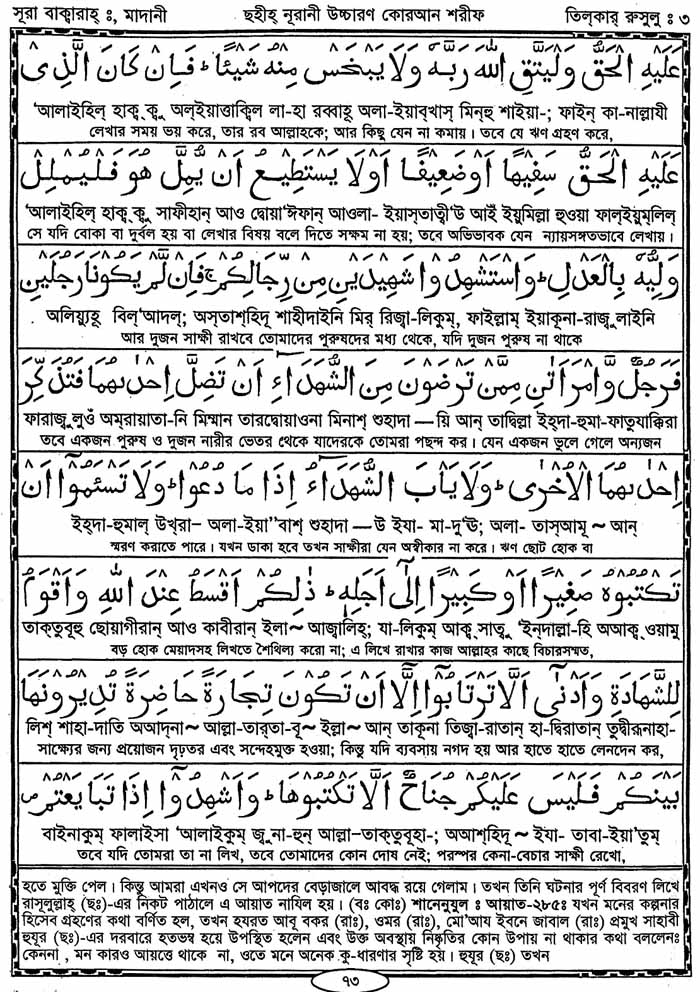 সূরা বাক্বারাহ্ ঃ, মাদানী ছহীহ্ নূরানী উচ্চারণ কোরআন শরীফ তিল্কার্ রুসুলু ঃ ৩
عَلَيْهِ الْحَقُّ وَلْيَتَّقِ اللّٰهَ رَبَّهٗ وَلَا يَبْخَسْ مِنْهُ شَيْئًا ؕ فَاِنْ كَانَ الَّذِىْ
'আলাইহিল্ হাক্ব্ ক্বু অল্ইয়াত্তাক্বিল লা-হা রব্বাহূ অলা-ইয়াব্খাস্ মিন্হু শাইয়া-; ফাইন্ কা-নাল্লাযী
লেখার সময় ভয় করে, তার রব আল্লাহকে; আর কিছু যেন না কমায়। তবে যে ঋণ গ্রহণ করে,
عَلَيْهِ الْحَقُّ سَفِيْهًا اَوْ ضَعِيْفًا اَوْ لَا يَسْتَطِيْعُ اَنْ يُّمِلَّ هُوَ فَلْيُمْلِلْ
'আলাইহিল্ হাক্ব্ ক্বু সাফীহান্ আও দ্বোয়া'ঈফান্ আওলা- ইয়াস্তাত্বী'উ আইঁ ইয়ুমিল্লা হুওয়া ফাল্ইয়ুম্লিল্
সে যদি বোকা বা দুর্বল হয় বা লেখার বিষয় বলে দিতে সক্ষম না হয়; তবে অভিভাবক যেন ন্যায়সঙ্গতভাবে লেখায়।
وَلِيُّهٗ بِالْعَدْلِ ؕ وَاسْتَشْهِدُوْا شَهِيْدَيْنِ مِنْ رِّجَالِكُمْ ۚ فَاِنْ لَّمْ يَكُوْنَا رَجُلَيْنِ
অলিয়্যুহূ বিল্'আদল্; অস্তাশ্হিদূ শাহীদাইনি মির্ রিজ্বা-লিকুম্, ফাইল্লাম্ ইয়াকূনা-রাজ্বুলাইনি
আর দুজন সাক্ষী রাখবে তোমাদের পুরুষদের মধ্য থেকে, যদি দুজন পুরুষ না থাকে
فَرَجُلٌ وَّامْرَاَتٰنِ مِمَّنْ تَرْضَوْنَ مِنَ الشُّهَدَآءِ اَنْ تَضِلَّ اِحْدٰىهُمَا فَتُذَكِّرَ
ফারাজ্বুলুওঁ অম্রায়াতা-নি মিম্মান তারদ্বোয়াওনা মিনাশ্ শুহাদা —য়ি আন্ তাদ্বিল্লা ইহ্দা-হুমা-ফাতুযাক্কিরা
তবে একজন পুরুষ ও দুজন নারীর ভেতর থেকে যাদেরকে তোমরা পছন্দ কর। যেন একজন ভুলে গেলে অন্যজন
اِحْدٰىهُمَا الْاُخْرٰى ؕ وَلَا يَاْبَ الشُّهَدَآءُ اِذَا مَا دُعُوْا ؕ وَلَا تَسْئَمُوْٓا اَنْ
ইহ্দা-হুমাল্ উখ্রা– অলা-ইয়া"বাশ্ শুহাদা —উ ইযা- মা-দু'ঊ; অলা- তাস্আমূ ~ আন্
স্মরণ করাতে পারে। যখন ডাকা হবে তখন সাক্ষীরা যেন অস্বীকার না করে। ঋণ ছোট হোক বা
تَكْتُبُوْهُ صَغِيْرًا اَوْ كَبِيْرًا اِلٰٓى اَجَلِهٖ ؕ ذٰلِكُمْ اَقْسَطُ عِنْدَ اللّٰهِ وَاَقْوَمُ
তাক্তুবূহু ছোয়াগীরান্ আও কাবীরান্ ইলা~ আজ্বালিহ্; যা-লিকুম্ আক্ব্ সাত্বু 'ইন্দাল্লা-হি অআক্ব্ ওয়ামু
বড় হোক মেয়াদসহ লিখতে শৈথিল্য করো না; এ লিখে রাখার কাজ আল্লাহর কাছে বিচারসম্মত,
لِلشَّهَادَةِ وَاَدْنٰٓى اَلَّا تَرْتَابُوْٓا اِلَّآ اَنْ تَكُوْنَ تِجَارَةً حَاضِرَةً تُدِيْرُوْنَهَا
লিশ্ শাহা-দাতি অআদ্না~ আল্লা-তার্তা-বূ~ ইল্লা~ আন্ তাকূনা তিজ্বা-রাতান্ হা-দ্বিরাতান্ তুদ্বীরূনাহা-
সাক্ষ্যের জন্য প্রয়োজন দৃঢ়তর এবং সন্দেহমুক্ত হওয়া; কিন্তু যদি ব্যবসায় নগদ হয় আর হাতে হাতে লেনদেন কর,
بَيْنَكُمْ فَلَيْسَ عَلَيْكُمْ جُنَاحٌ اَلَّا تَكْتُبُوْهَا ؕ وَاَشْهِدُوْٓا اِذَا تَبَايَعْتُمْ
বাইনাকুম্ ফালাইসা 'আলাইকুম্ জ্বুনা-হুন্ আল্লা–তাক্তুবূহা-; অআশ্হিদূ ~ ইযা- তাবা-ইয়া'তুম্
তবে যদি তোমরা তা না লিখ, তবে তোমাদের কোন দোষ নেই; পরস্পর কেনা-বেচার সাক্ষী রেখো,
হতে মুক্তি পেল। কিন্তু আমরা এখনও সে আপদের বেড়াজালে আবদ্ধ রয়ে গেলাম। তখন তিনি ঘটনার পূর্ণ বিবরণ লিখে
রাসূলুল্লাহ্ (ছঃ)-এর নিকট পাঠালে এ আয়াত নাযিল হয়। (বঃ কোঃ) শানেনুযুল ঃ আয়াত-২৮৫ঃ যখন মনের কল্পনার
হিসেব গ্রহণের কথা বর্ণিত হল, তখন হযরত আবূ বকর (রাঃ), ওমর (রাঃ), মো'আয ইবনে জাবাল (রাঃ) প্রমুখ সাহাবী
হুযূর (ছঃ)-এর দরবারে হতভম্ব হয়ে উপস্থিত হলেন এবং উক্ত অবস্থায় নিষ্কৃতির কোন উপায় না থাকার কথা বললেনঃ
কেননা , মন কারও আয়ত্তে থাকে না, ওতে মনে অনেক কু-ধারণার সৃষ্টি হয়। হুযূর (ছঃ) তখন
৭৩